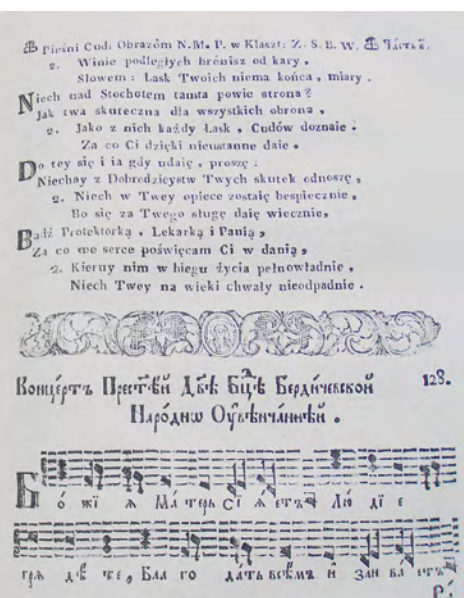 Pieśni Cud: Obrazóm N.M. P. w Klaszt: Z. S. B. W. Часть
2. Winie podległych brónisz od kary,
Słowem: Łask Twoich niema końca, miary.
Niech nad Stochotem tamta powie strona?
Jak twa skuteczna dla wszystkich obrona,
2. Jako z nich każdy Łask, Cudów doznaie.
Za co Ci dzięki nieustanne daie.
Do tey się i ia gdy udaię, proszę:
Niechay z Dobrodzieystw Twych skutek odnoszę,
2. Niech w Twey opiece zostaię bespiecznie,
Bo się za Twego sługę daię wiecznie,
Bądź Protektorką, Lekarką i Panią,
Za co me serce poświęcam Ci w danią,
2. Kieruy nim w biegu życia pełnowładnie,
Niech Twey na wieki chwały nieodpadnie.
Концертъ Прест҃ѣй Дв҃ѣ Бц҃ѣ Бердичевской 128.
Народнѡ Оувѣнчаннѣй.
Бо жї ѧ Ма терь сї ѧ етъ Лю дїе
грѧ дѣ те, Бла го дать всѣмъ и зли ва етъ